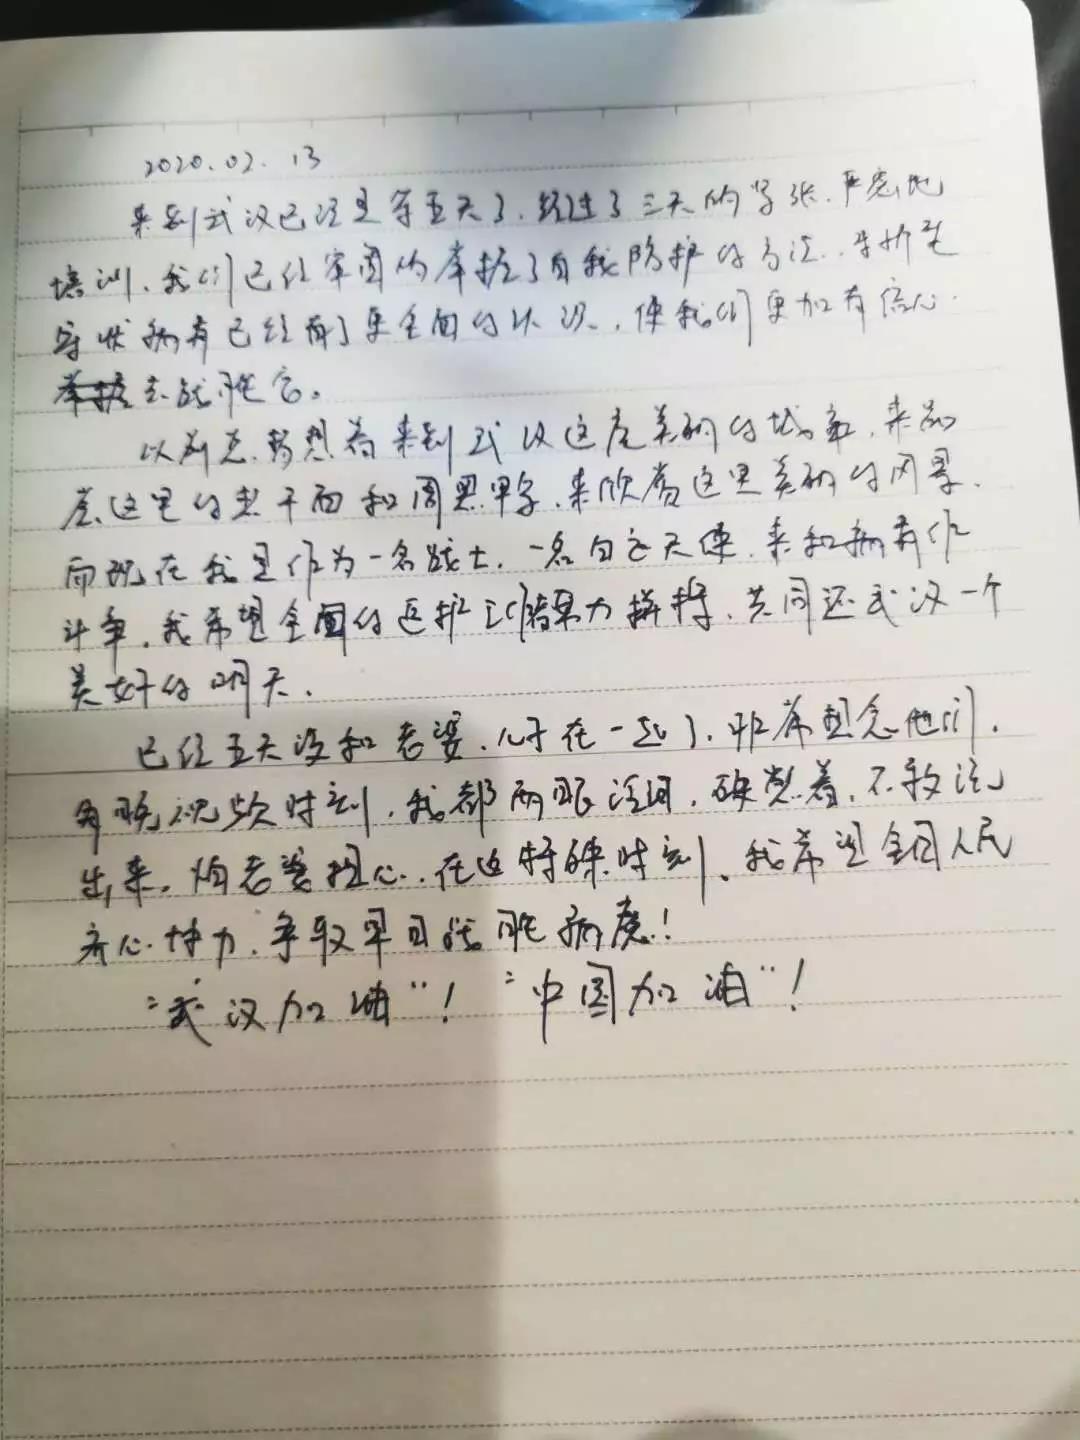 2020.02.13
来到武汉已经是第五天了.经过了三天的紧张.严肃地
培训、我们已经牢固的掌握了自我防护的方法..对新型
冠状病毒已经有了更全面的认识.,使我们更加有信心.
去战胜它。
以前总梦想着来到武汉这座美丽的城市,来品
尝这里的热干面和周黑鸭,来欣赏这里美丽的风景、
而现在我是作为一名战士.一名白衣天使.来和病毒作
斗争,我希望全国的医护工作者努力拼搏、共同还武汉一个
美好的明天.
已经五天没和老婆.儿子在一起了.非常想念他们.
每晚视频时刻,我都两眼泪,硬憋着,不敢流
出来.怕老婆担心.在这特殊时刻、我希望全国人民
齐心协力.争取早日战胜病魔!
"武汉加油"! "中国加油"!